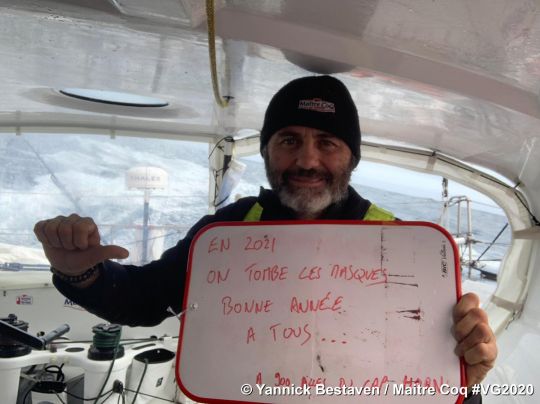 Maître CoQ
THALES
EN 2021
ON TOMBE LES MASQUES
BONNE ANNÉE
A TOUS ...
A 900 DU CAP HORN
© Yannick Bestaven / Maître Coq #VG2020